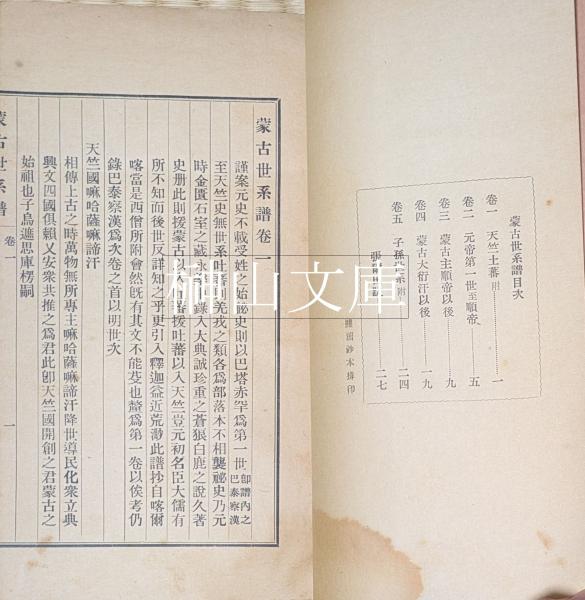 蒙古世系譜目次
卷一 天竺土蕃附 一
卷二 元帝第一世至順帝 五
卷三 蒙古主順帝以後 九
卷四 蒙古大衍汗以後 一九
卷五 子孫世系附 二四
二七
鈔本排印
蒙古世系譜卷一
謹案元史不載受姓之始祕史則以巴塔赤罕爲第一世卽譜內之巴泰察漢
至天竺史無世系吐蕃則羌戎之類各爲部落本不相襲祕史乃元
時金匱石室之藏永樂錄入大典誠珍重之蒼狼白鹿之說久著
史册此則援蒙古以入吐蕃援吐蕃以入天竺豈元初名臣大儒有
所不知而後世反詳知之乎更引入釋迦益近荒渺此譜抄自喀爾
喀當是西僧所附會然旣有其文不能芟也蟄爲第一卷以俟考仍
錄巴泰察漢爲次卷之首以明世次
天竺國嘛哈薩嘛諦汗
相傳上古之時萬物無所專主嘛哈薩嘛諦汗降世導民化衆立典
興文四國俱賴乂安衆共推之爲君此卽天竺國開創之君蒙古之
始祖也子烏遮思庫楞嗣
蒙古世系譜 卷一 一
栭山文庫